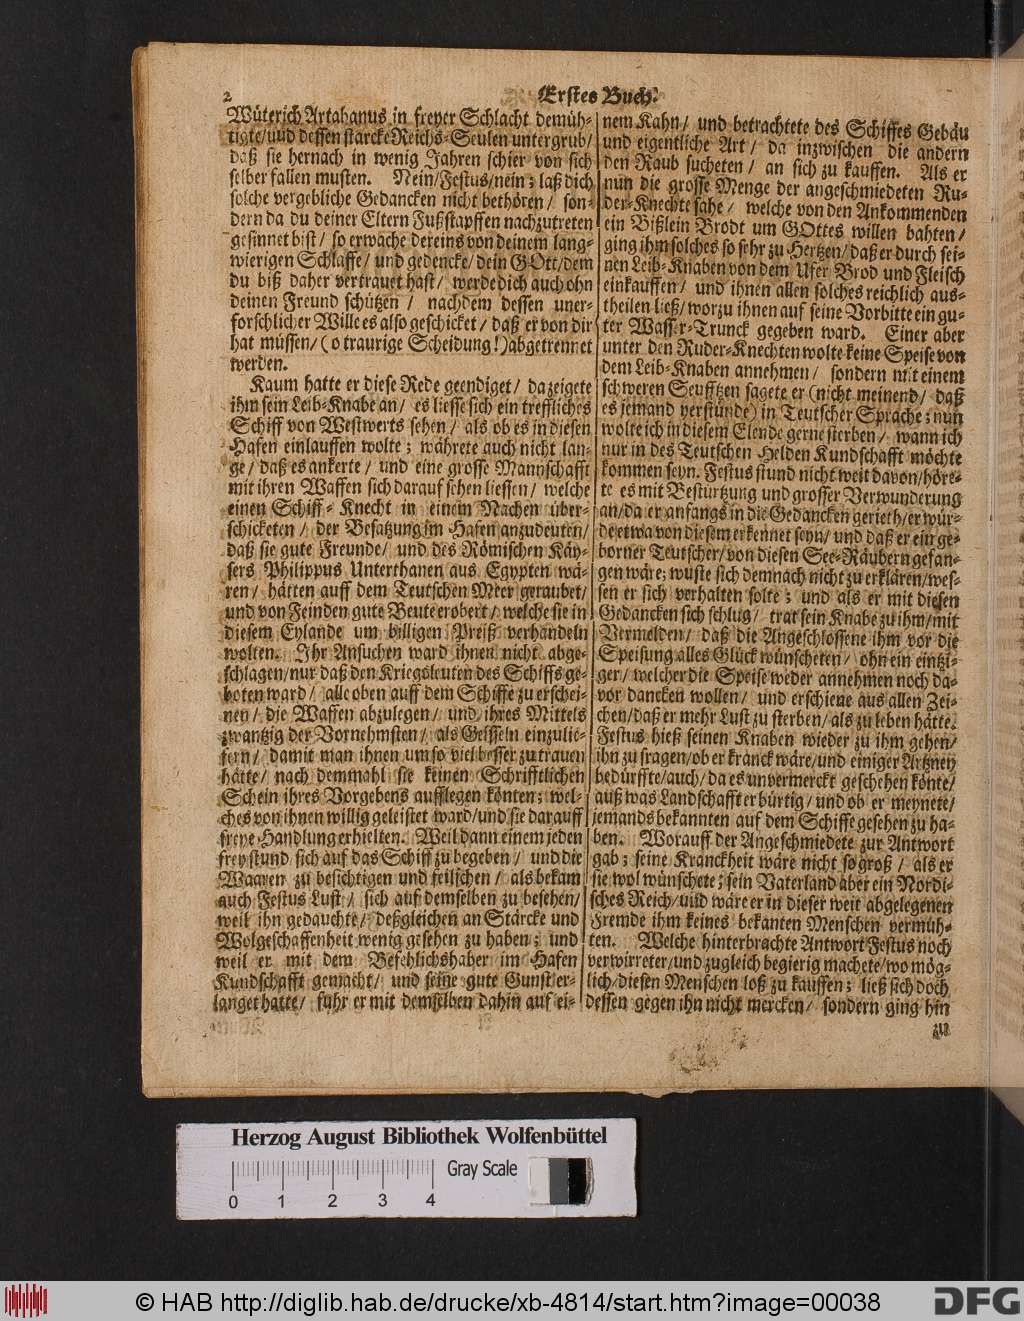 2
Erstes Buch.
Wüterich Artabanus in freyer Schlacht demüh-
tigte/und dessen starcke Reichs-Seulen untergrub/
daß sie hernach in wenig Jahren schier von sich
selber fallen musten. Nein/Festus/nein; laß dich
solche vergebliche Gedancken nicht bethören/ son-
dern da du deiner Eltern Fußstapffen nachzutreten
gesinnet bist/ so erwache dereins von deinem lang-
wierigen Schlaffe/ und gedencke/ dein GOtt/dem
du biß daher vertrauet hast/ werde dich auch ohn
deinen Freund schützen/ nachdem dessen uner-
forschlicher Wille es also geschicket/ daß er von dir
hat müssen/(o traurige Scheidung!)abgetrennet
werden.
Kaum hatte er diese Rede geendiget/ da zeigete
ihm sein Leib-Knabe an/ es liesse sich ein treffliches
Schiff von Westwerts sehen/ als ob es in diesen
Hafen einlauffen wolte; währete auch nicht lan-
ge/ daß es ankerte/ und eine grosse Mannschafft
mit ihren Waffen sich darauf sehen liessen/ welche
einen Schiff-Knecht in einem Nachen über-
schicketen/ der Besatzung im Hafen anzudeuten/
daß sie gute Freunde/ und des Römischen Käy-
sers Philippus Unterthanen aus Egypten wä-
ren/ hätten auff dem Teutschen Meer geraubet/
und von Feinden gute Beute erobert/ welche sie in
diesem Eylande um billigen Preiß verhandeln
wolten. Ihr Ansuchen ward ihnen nicht abge-
schlagen/nur daß den Kriegsleuten des Schiffs ge-
boten ward/ alle oben auff dem Schiffe zu erschei-
nen/ die Waffen abzulegen/ und ihres Mittels
zwantzig der Vornehmsten/ als Geisseln einzulie-
fern/ damit man ihnen um so viel besser zu trauen
hätte/ nach demmahl sie keinen Schrifftlichen
Schein ihres Vorgebens aufflegen könten; wel-
ches von ihnen willig geleistet ward/und sie darauff
freye Handlung erhielten. Weil dann einem jeden
frey stund sich auf das Schiff zu begeben/ und die
Waaren zu besichtigen und feilschen/ als bekam
auch Festus Lust/ sich auf demselben zu besehen/
weil ihn gedauchte/ deßgleichen an Stärcke und
Wolgeschaffenheit wenig gesehen zu haben; und
weil er mit dem Befehlichshaber im Hafen
Kundschafft gemacht/ und seine gute Gunst er-
langet hatte/ fuhr er mit demselben dahin auf ei-
nem Kahn/ und betrachtete des Schiffes Gebäu
und eigentliche Art/ da inzwischen die andern
den Raub sucheten/ an sich zu kauffen. Als er
nun die grosse Menge der angeschmiedeten Ru-
der-Knechte sahe/ welche von den Ankommenden
ein Bißlein Brodt um GOttes willen bahten/
ging ihm solches so sehr zu Hertzen/ daß er durch sei-
nen Leib-Knaben von dem Ufer Brod und Fleisch
einkauffen/ und ihnen allen solches reichlich aus-
theilen ließ/ worzu ihnen auf seine Vorbitte ein gu-
ter Wasser-Trunck gegeben ward. Einer aber
unter den Ruder-Knechten wolte keine Speise von
dem Leib-Knaben annehmen/ sondern mit einem
schweren Seufftzen sagete er (nicht meinend/ daß
es jemand verstünde) in Teutscher Sprache; nun
wolte ich in diesem Elende gerne sterben/ wann ich
nur in des Teutschen Helden Kundschafft möchte
kommen seyn. Festus stund nicht weit davon/höre-
te es mit Bestürtzung und grosser Verwunderung
an/da er anfangs in die Gedancken gerieth/er wür-
de etwa von diesem erkennet seyn/ und daß er ein ge-
borner Teutscher/von diesen See-Räubern gefan-
gen wäre; wuste sich demnach nicht zu erklären/wes-
sen er sich verhalten solte; und als er mit diesen
Gedancken sich schlug/ trat sein Knabe zu ihm/mit
Vermelden/ daß die Angeschlossene ihm vor die
Speisung alles Glück wünscheten/ ohn ein eintzi-
ger/ welcher die Speise weder annehmen noch da-
vor dancken wollen/ und erschiene aus allen Zei-
chen/daß er mehr Lust zu sterben/als zu leben hätte.
Festus hieß seinen Knaben wieder zu ihm gehen/
ihn zu fragen/ob er kranck wäre/und einiger Artzney
bedürffte/auch/ da es unvermerckt geschehen könte/
auß was Landschafft er bürtig/ und ob er meynete/
jemands bekannten auf dem Schiffe gesehen zu ha-
ben. Worauff der Angeschmiedete zur Antwort
gab; seine Kranckheit wäre nicht so groß/ als er
sie wol wünschete; sein Vaterland aber ein Nordi-
sches Reich/und wäre er in dieser weit abgelegenen
Fremde ihm keines bekanten Menschen vermüh-
ten. Welche hinterbrachte Antwort Festus noch
verwirreter/und zugleich begierig machete/wo mög-
lich/diesen Menschen loß zu kauffen; ließ sich doch
dessen gegen ihn nicht mercken/ sondern ging hin
zu
Herzog August Bibliothek Wolfenbüttel
Gray Scale
0 1 2 3 4
© HAB http://diglib.hab.de/drucke/xb-4814/start.htm?image=00038
DFG